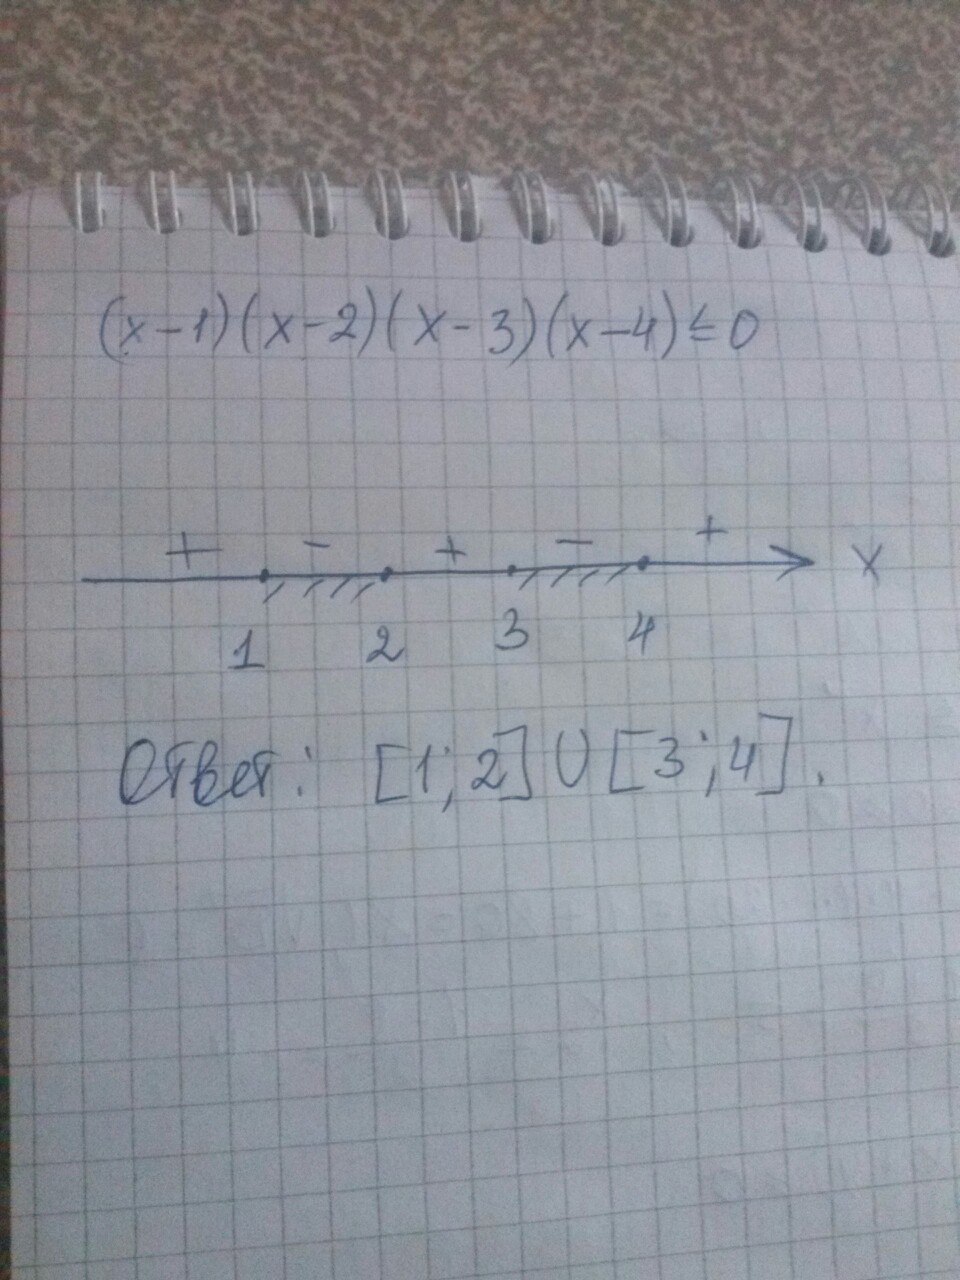 (x-1)(x-2)(x-3)(x-4)≤0
+ - + - + x
1 2 3 4
Ответ: [1;2]∪[3;4].